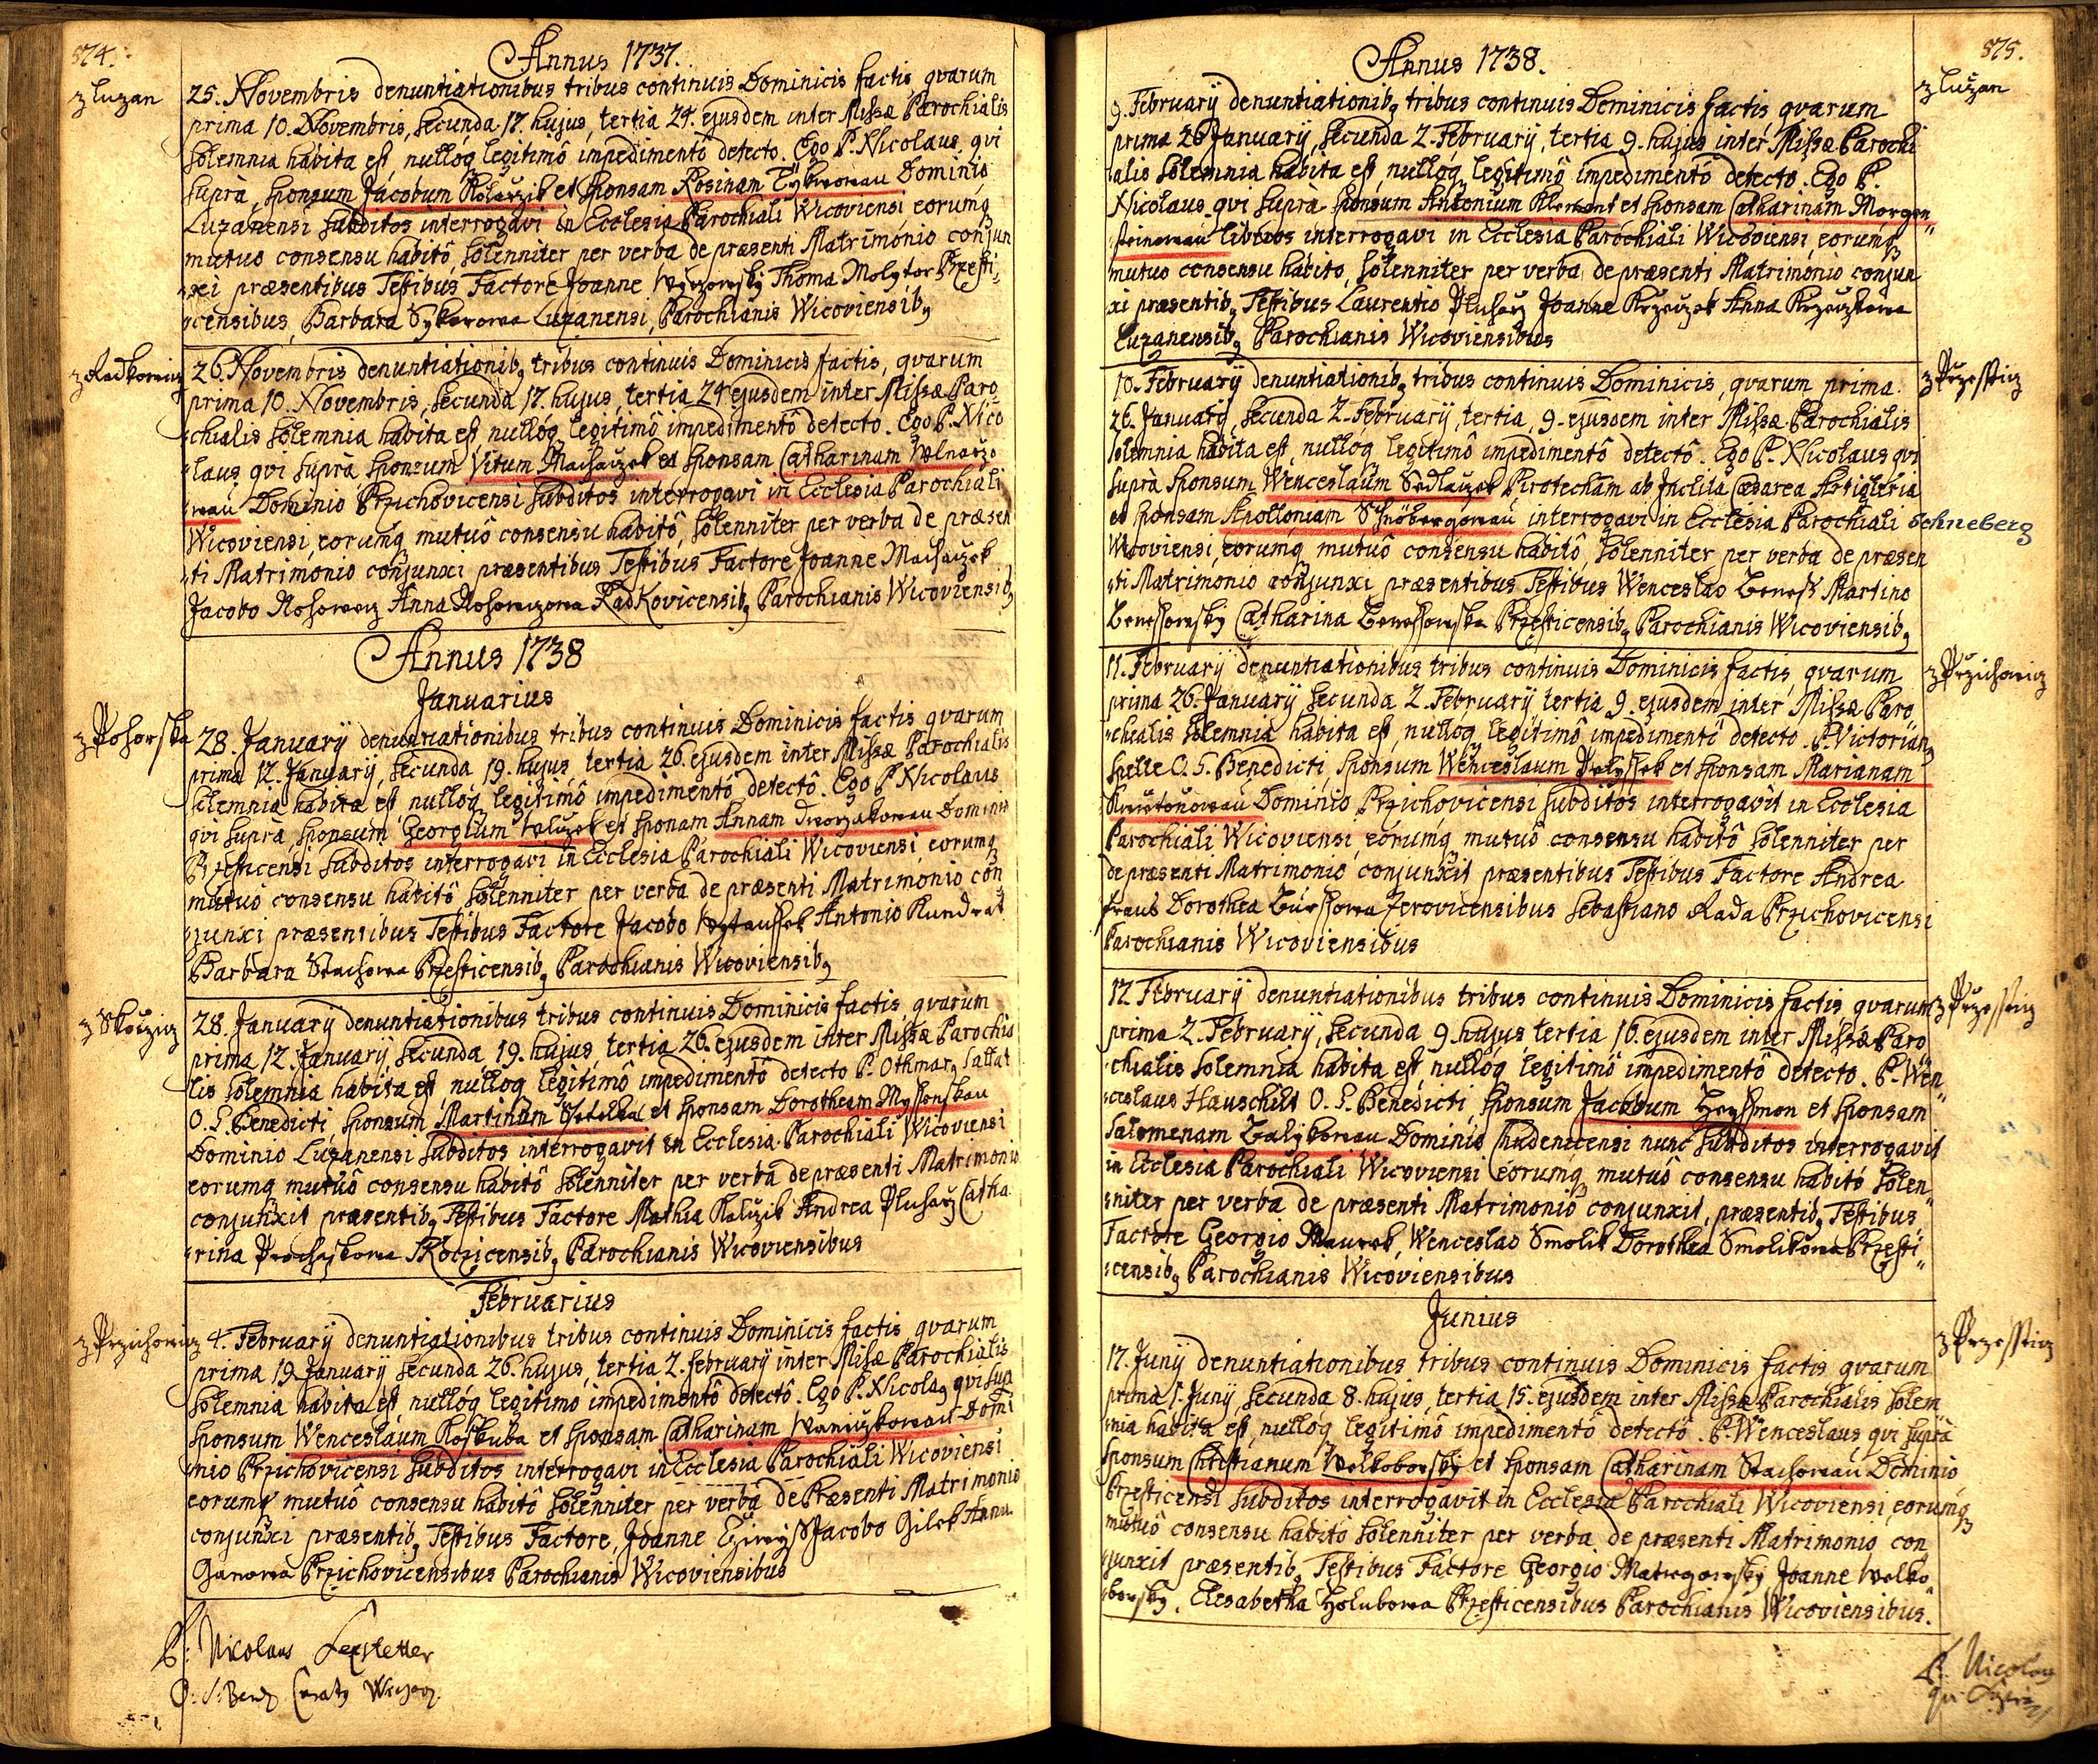 874.
Annus 1737.
z Luzan
25. Novembris denuntiationibus tribus continuis Dominicis factis, qvarum
prima 10. Novembris, secunda 17. hujus, tertia 24. ejusdem inter Missæ Parochialis
solemnia habita est, nulloq legitimô impedimentô detecto. Ego P. Nicolaus, qvi
supra, sponsum Jacobum Kolarzik et sponsam Rosinam Dominio
Luzanensi subditos interrogavi in Ecclesia Parochiali Wicoviensi eorumq
mutuo consensu habitô, solenniter per verba de præsenti Matrimonio conjun
xi præsentibus Testibus Factore Joanne Thoma Molytor Przesti,
censibus, Barbara Sykorowa Luzanensi, Parochianis Wicoviensib9
z Radkowicz
26. Novembris denuntiationib9 tribus continuis Dominicis factis, qvarum
prima 10. Novembris, secunda 17. hujus, tertia 24 ejusdem inter Missæ Paro,
chialis solemnia habita est, nulloq legitimô impedimentô detecto. Ego P. Nico
laus qvi supra sponsum Vitum Machaczek et sponsam Catharinam Wolnarzo
wau Dominio Przichovicensi subditos interrogavi in Ecclesia Parochiali
Wicoviensi, eorumq mutuô consensu habitô, solenniter per verba de præsen
ti Matrimonio conjunxi præsentibus Testibus Factore Joanne Machaczek
Jacobo Anna Radkovicensib9 Parochianis Wicoviensib9
Annus 1738
Januarius
z Pohorska
28. Januarÿ denuntiationibus tribus continuis Dominicis factis qvarum
prima 12. Januarÿ, secunda 19. hujus, tertia 26. ejusdem inter Missæ Parochialis
solemnia habita est, nulloq legitimô impedimentô detectô. Ego P. Nicolaus
qvi supra, sponsum Georgium et sponam Annam Dworzakowau Dominio
Przesticensi subditos interrogavi in Ecclesia Parochiali Wicoviensi, eorumq
mutuô consensu habitô solenniter per verba de præsenti Matrimonio con
junxi præsentibus Testibus Factore Jacobo Antonio Kundrat
Barbara Stachowa Przesticensib9 Parochianis Wicoviensib9
z Skoczicz
28. Januarÿ denuntiationibus tribus continuis Dominicis factis, qvarum
prima 12. Januarÿ, secunda 19. hujus, tertia 26. ejusdem inter Missæ Parochia
lis solemnia habita est, nulloq legitimô impedimentô detecto P. Othmar9 Sallat
O. S. Benedicti, sponsum Martinum et sponsam Dorotheam
Dominio Luzanensi subditos interrogavit in Ecclesia Parochiali Wicoviensi
eorumq mutuô consensu habitô solenniter per verba de præsenti Matrimonio
conjunxit præsentib9 Testibus Factore Mathia Kaluzik Andrea Pluharz Catha
rina Prochaskowa Skoczicensib9 Parochianis Wicoviensibus
Februarius
z Przichowicz
4. Februarÿ denuntiationibus tribus continuis Dominicis factis, qvarum
prima 19. Januarÿ secunda 26. hujus, tertia 2. Februarÿ inter Missæ Parochialis
solemnia habita est, nulloq legitimô impedimentô detectô. Ego P. Nicola9 qvi sup
sponsum Wenceslaum Koskuba et sponsam Catharinam Waniczkowau Domi
nio Przichovicensi subditos interrogavi in Ecclesia Parochiali Wicoviensi
eorumq mutuô consensu habitô solenniter per verba de Præsenti Matrimonio
conjunxi præsentib9 Testibus Factore, Joanne Jacobo Gilek Anna
Przichovicensibus Parochianis Wicoviensibus
P: Nicolaus Lexstetter
O: S: Bened Curat9
875.
Annus 1738.
z Luzan
9. Februarÿ denuntiationib9 tribus continuis Dominicis factis, qvarum
prima 26 Januarÿ, secunda 2. Februarÿ, tertia 9. hujus inter Missæ Parochi
alis solemnia habita est, nulloq legitimô impedimentô detecto. Ego P.
Nicolaus qvi supra sponsum Antonium Klement et sponsam Catharinam Morgen"
steinowau liberos interrogavi in Ecclesia Parochiali Wicoviensi, eorumq
mutuo consensu habito, solenniter per verba de præsenti Matrimonio conjun
xi præsentib9 Testibus Laurentio Pluharz Joanne Krzeczek Anna Krzeczkowa
Luzanensib9 Parochianis Wicoviensibus
z Przessticz
10. Februarÿ denuntiationib9 tribus continuis Dominicis, qvarum prima
26. Januarÿ, secunda 2. Februarÿ, tertia, 9. ejusdem inter Missæ Parochialis
solemnia habita est, nulloq legitimô impedimentô detectô. Ego P. Nicolaus qvi
supra sponsum Wenceslaum Sedlaczek Pirotecham ab Inclita Cæsarea Artigleria
et sponsam Apolloniam Schnöbergowau interrogavi in Ecclesia Parochiali
Schneberg
Wicoviensi, eorumq mutuô consensu habitô, solenniter per verba de præsen
ti Matrimonio conjunxi præsentibus Testibus Wenceslao Benesch Martino
Benessowsky Catharina Benessowska Przesticensib9 Parochianis Wicoviensib9
z Przichowicz
11. Februarÿ denuntiationibus tribus continuis Dominicis factis, qvarum
prima 26. Januarÿ secunda 2. Februarÿ tertia 9. ejusdem inter Missæ Paro"
chialis solemnia habita est, nulloq legitimô impedimentô detecto. P. Victorian9
Spelle O. S. Benedicti, sponsum Wenceslaum et sponsam Marianam
Dominio Przichovicensi subditos interrogavit in Ecclesia
Parochiali Wicoviensi, eorumq mutuô consensu habitô solenniter per
de præsenti Matrimonio conjunxit præsentibus Testibus Factore Andrea
Dorothea Jerovicensibus Sebastiano Rada Przichovicensi
Parochianis Wicoviensibus
z Przessticz
12. Februarÿ denuntiationibus tribus continuis Dominicis factis qvarum
prima 2. Februarÿ, secunda 9. hujus, tertia 16. ejusdem inter Missæ Paro
chialis solemnia habita est, nulloq legitimô impedimentô detecto. P. Wen"
ceslaus Hauschilt O. S. Benedicti, sponsum Jacobum et sponsam
Salomenam Dominio Chudenicensi nunc subditos interrogavit
in Ecclesia Parochiali Wicoviensi eorumq mutuô consensu habitô solen"
niter per verba de præsenti Matrimonio conjunxit, præsentib9 Testibus
Factore Georgio Maurek, Wenceslao Smolik Dorothea Smolikowa Przesti"
censib9 Parochianis Wicoviensibus
Junius
z Przessticz
17. Junÿ denuntiationibus tribus continuis Dominicis factis qvarum
prima 1. Junÿ, secunda 8. hujus, tertia 15. ejusdem inter Missæ Parochialis solem
nia habita est, nulloq legitimô impedimentô detectô. P. Wenceslaus, qvi supra
sponsum Christianum Welkoborsky et sponsam Catharinam Stachowau Dominio
Przesticensi subditos interrogavit in Ecclesia Parochiali Wicoviensi, eorumq
mutuô consensu habito solenniter per verba de præsenti Matrimonio con
junxit præsentib9 Testibus Factore Georgio Joanne Welko
borsky, Elesabetha Holubowa Przesticensibus Parochianis Wicoviensibus.
P. Nicolaus
qui supra